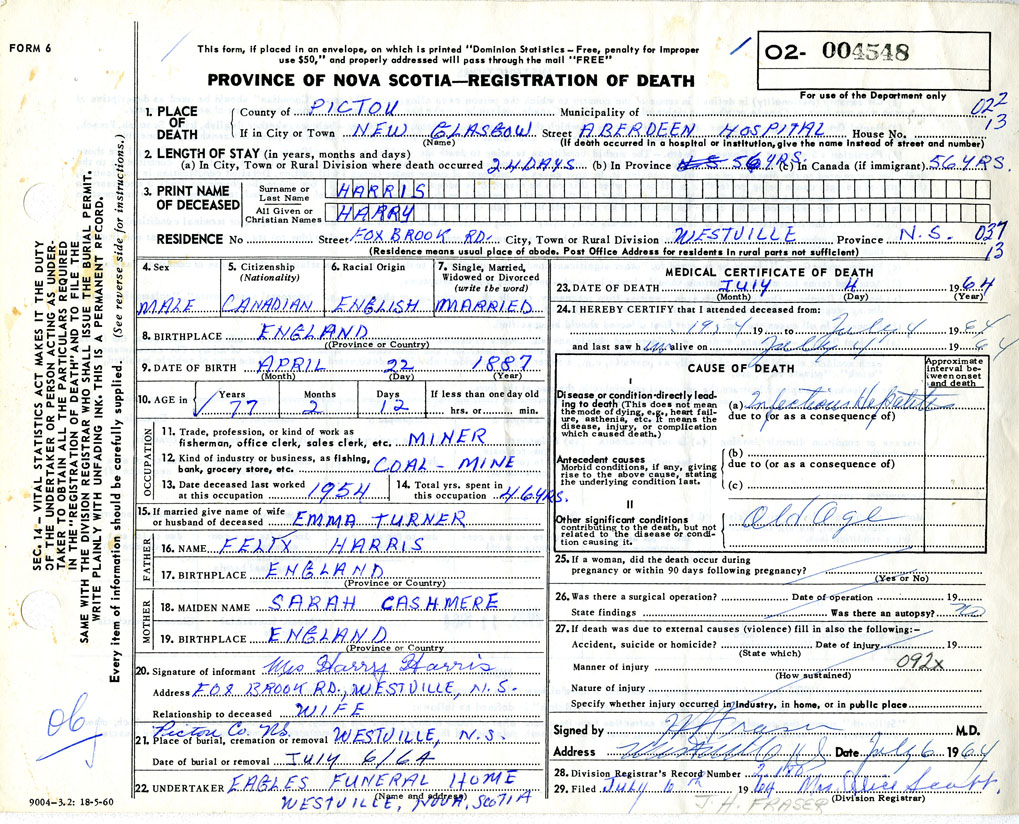 FORM 6
This form, if placed in an envelope, on which is printed "Dominion Statistics – Free, penalty for improper
use $50," and properly addressed will pass through the mail "FREE"
02- 004548
PROVINCE OF NOVA SCOTIA—REGISTRATION OF DEATH
For use of the Department only
022
13
1. PLACE OF DEATH
County of PICTOU Municipality of
If in City or Town NEW GLASGOW Street ABERDEEN HOSPITAL House No.
(Name) (If death occurred in a hospital or institution, give the name instead of street and number)
2. LENGTH OF STAY (in years, months and days)
(a) In City, Town or Rural Division where death occurred 24 DAYS (b) In Province 56 YRS. (c) In Canada (if immigrant) 56 YRS.
3. PRINT NAME OF DECEASED
Surname or Last Name HARRIS
All Given or Christian Names HARRY
RESIDENCE No Street FOX BROOK RD. City, Town or Rural Division WESTVILLE Province N.S. 037
13
(Residence means usual place of abode. Post Office Address for residents in rural parts not sufficient)
4. Sex
MALE
5. Citizenship (Nationality)
CANADIAN
6. Racial Origin
ENGLISH
7. Single, Married, Widowed or Divorced (write the word)
MARRIED
8. BIRTHPLACE ENGLAND
(Province or Country)
9. DATE OF BIRTH APRIL 22 1887
(Month) (Day) (Year)
10. AGE in Years Months Days If less than one day old
77 2 12 hrs. or min.
OCCUPATION
11. Trade, profession, or kind of work as
fisherman, office clerk, sales clerk, etc. MINER
12. Kind of industry or business, as fishing,
bank, grocery store, etc. COAL - MINE
13. Date deceased last worked
at this occupation 1954
14. Total yrs. spent in
this occupation 46 YRS.
15. If married give name of wife
or husband of deceased EMMA TURNER
FATHER
16. NAME FELIX HARRIS
17. BIRTHPLACE ENGLAND
(Province or Country)
MOTHER
18. MAIDEN NAME SARAH CASHMERE
19. BIRTHPLACE ENGLAND
(Province or Country)
20. Signature of informant Mrs Harry Harris
Address FOX BROOK RD., WESTVILLE, N.S.
Relationship to deceased WIFE
Pictou Co. NS.
21. Place of burial, cremation or removal WESTVILLE, N.S.
Date of burial or removal JULY 6/64
22. UNDERTAKER EAGLES FUNERAL HOME
(Name and address)
WESTVILLE, NOVA SCOTIA
MEDICAL CERTIFICATE OF DEATH
23. DATE OF DEATH July 4 1964
(Month) (Day) (Year)
24. I HEREBY CERTIFY that I attended deceased from:
1954 19 to July 4 1964
and last saw him alive on July 4 1964
CAUSE OF DEATH
Approximate interval between onset and death
I
Disease or condition directly leading to death (This does not mean
the mode of dying, e.g., heart failure, asthenia, etc. It means the
disease, injury, or complication
which caused death.)
(a) Infectious Hepatitis
due to (or as a consequence of)
Antecedent causes
Morbid conditions, if any, giving
rise to the above cause, stating
the underlying condition last.
(b)
due to (or as a consequence of)
(c)
II
Other significant conditions
contributing to the death, but not
related to the disease or condition causing it.
Old Age
25. If a woman, did the death occur during
pregnancy or within 90 days following pregnancy?
(Yes or No)
26. Was there a surgical operation? Date of operation 19
State findings Was there an autopsy? No
27. If death was due to external causes (violence) fill in also the following:–
Accident, suicide or homicide? Date of injury 19
(State which)
Manner of injury 092x
(How sustained)
Nature of injury
Specify whether injury occurred in industry, in home, or in public place
Signed by J H Fraser M.D.
Address Westville N S Date July 6 1964
28. Division Registrar's Record Number
29. Filed July 6th 1964 Mrs. Alice Scott.
(Division Registrar)
J. H. FRASER
SEC. 14 – VITAL STATISTICS ACT MAKES IT THE DUTY
OF THE UNDERTAKER OR PERSON ACTING AS UNDERTAKER TO OBTAIN ALL THE PARTICULARS REQUIRED
IN THE "REGISTRATION OF DEATH" AND TO FILE THE
SAME WITH THE DIVISION REGISTRAR WHO SHALL ISSUE THE BURIAL PERMIT.
WRITE PLAINLY WITH UNFADING INK. THIS IS A PERMANENT RECORD.
Every item of information should be carefully supplied. (See reverse side for instructions.)
9004–3.2: 18-5-60